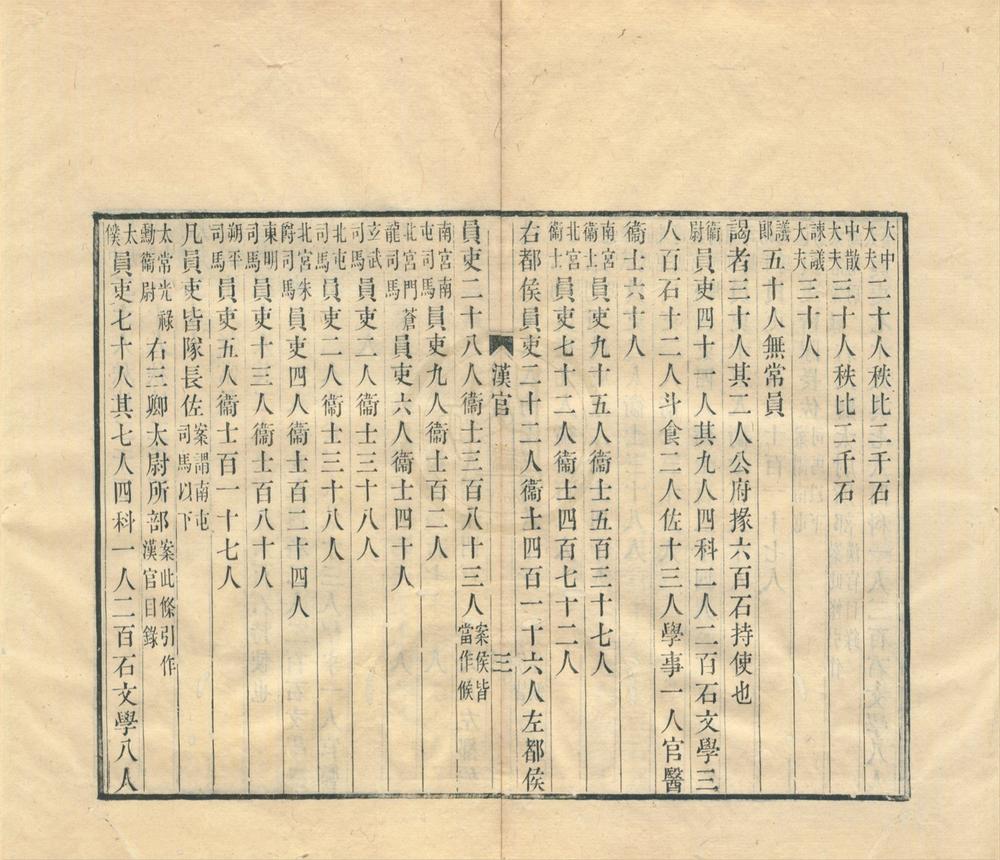 太中大夫二十人秩比二千石
中散大夫三十人秩比二千石
諫議大夫三十人
議郎五十人無常員
謁者三十人其二人公府掾六百石持使也
衞尉員吏四十一人其九人四科二人二百石文學三
人百石十二人斗食二人佐十三人學事一人官醫
衞士六十人
南宮衞士員吏九十五人衞士五百三十七人
北宮衞士員吏七十二人衞士四百七十二人
右都侯員吏二十二人衞士四百一十六人左都侯
漢官 三
員吏二十八人衞士三百八十三人案侯皆當作候
南宮南屯司馬員吏九人衞士百二人
北宮門蒼龍司馬員吏六人衞士四十人
玄武司馬員吏二人衞士三十八人
北屯司馬員吏二人衞士三十八人
北宮朱爵司馬員吏四人衞士百二十四人
東明司馬員吏十三人衞士百八十人
朔平司馬員吏五人衞士百一十七人
凡員吏皆隊長佐案謂南屯司馬以下
太常光祿勳衞尉右三卿太尉所部案此條引作漢官目錄
太僕員吏七十人其七人四科一人二百石文學八人